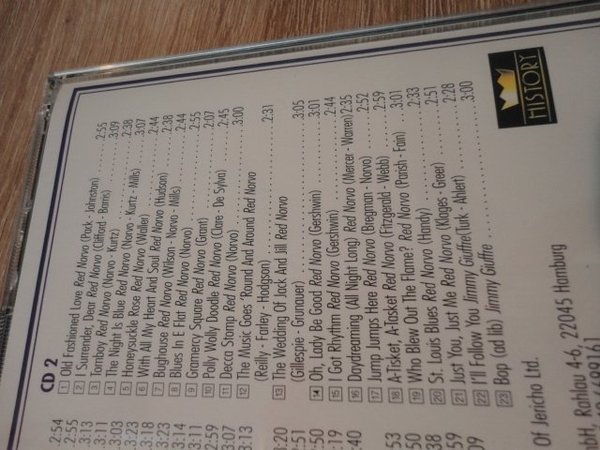 CD 2
1 Old Fashioned Love Red Norvo (Pack - Johnston) 2:55
2 I Surrender, Dear Red Norvo (Clifford - Barris) 3:09
3 Tomboy Red Norvo (Norvo - Kurtz) 2:38
4 The Night Is Blue Red Norvo (Norvo - Kurtz - Mills) 3:07
5 Honeysuckle Rose Red Norvo (Waller) 2:44
6 With All My Heart And Soul Red Norvo (Hudson) 2:38
7 Bughouse Red Norvo (Wilson - Norvo - Mills) 2:44
8 Blues In E Flat Red Norvo (Norvo) 2:55
9 Grammercy Square Red Norvo (Grant) 2:07
10 Polly Wolly Doodle Red Norvo (Clare - De Sylva) 2:45
11 Decca Stomp Red Norvo (Norvo) 3:00
12 The Music Goes 'Round And Around Red Norvo
(Reilly - Farley - Hodgson) 2:31
13 The Wedding Of Jack And Jill Red Norvo
(Gillespie - Grunauer) 3:05
14 Oh, Lady Be Good Red Norvo (Gershwin) 3:01
15 I Got Rhythm Red Norvo (Gershwin) 2:44
16 Daydreaming (All Night Long) Red Norvo (Mercer - Warren) 2:35
17 Jump Jumps Here Red Norvo (Bregman - Norvo) 2:52
18 A-Tisket, A-Tasket Red Norvo (Fitzgerald - Webb) 2:59
19 Who Blew Out The Flame? Red Norvo (Parish - Fain) 3:01
20 St. Louis Blues Red Norvo (Handy) 2:33
21 Just You, Just Me Red Norvo (Klages - Greer) 2:51
22 I'll Follow You Jimmy Giuffre(Turk - Ahlert) 2:28
23 Bop (ad lib) Jimmy Giuffre 3:00
HISTORY
2:54
2:55
3:13
3:11
3:03
3:23
3:18
3:23
3:14
3:11
2:59
3:07
3:13
Of Jericho Ltd.
Rahlau 4-6, 22045 Hamburg